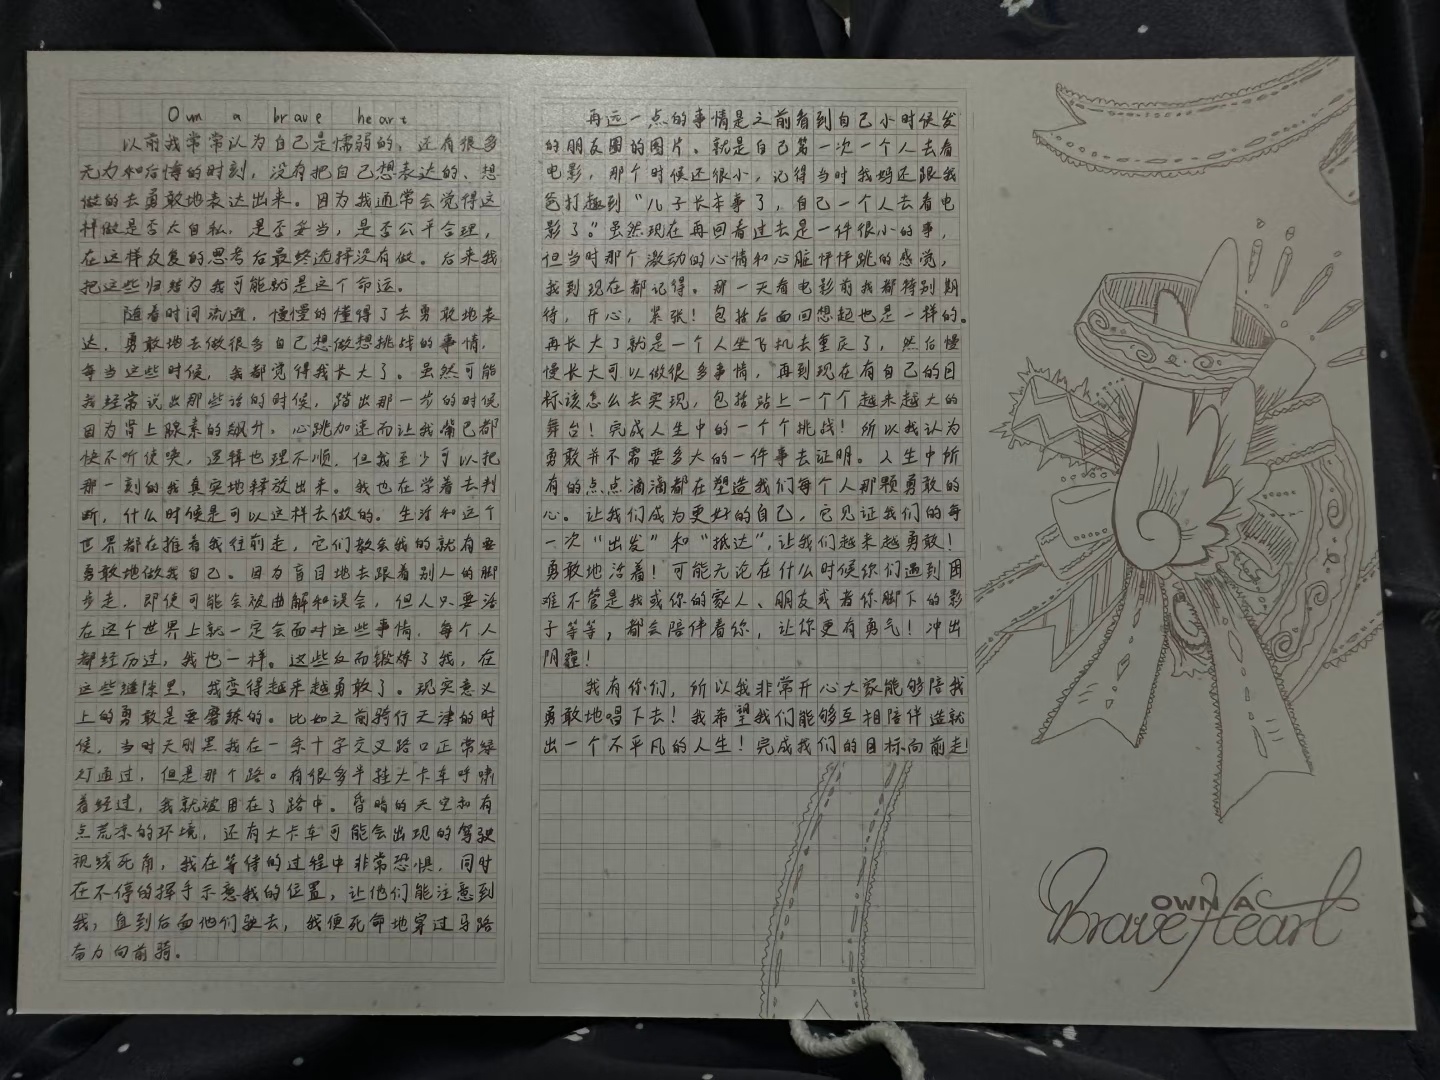 Own a brave heart
以前我常常认为自己是懦弱的，还有很多
无力和后悔的时刻，没有把自己想表达的、想
做的去勇敢地表达出来。因为我通常会觉得这
样做是否太自私，是否妥当，是否公平合理，
在这样反复的思考后最终选择没有做。后来我
把这些归结为我可能就是这个命运。
随着时间流逝，慢慢的懂得了去勇敢地表
达，勇敢地去做很多自己想做想挑战的事情，
每当这些时候，我都觉得我长大了。虽然可能
我经常说出那些话的时候，踏出那一步的时候
因为肾上腺素的飙升，心跳加速而让我嘴巴都
快不听使唤，逻辑也理不顺，但我至少可以把
那一刻的我真实地释放出来。我也在学着去判
断，什么时候是可以这样去做的。生活和这个
世界都在推着我往前走，它们教会我的就有要
勇敢地做我自己。因为盲目地去跟着别人的脚
步走，即使可能会被曲解和误会，但人只要活
在这个世界上就一定会面对这些事情，每个人
都经历过，我也一样。这些反而锻炼了我，在
这些缝隙里，我变得越来越勇敢了。现实意义
上的勇敢是要磨练的。比如之前骑行天津的时
候，当时天刚黑我在一条十字交叉路口正常绿
灯通过，但是那个路。有很多半挂大卡车呼啸
着经过，我就被困在了路中。昏暗的天空和有
点荒杀的环境，还有大卡车可能会出现的驾驶
视线死角，我在等待的过程中非常恐惧，同时
在不停的挥手示意我的位置，让他们能注意到
我，直到后面他们驶去，我便死命地穿过马路
奋力向前骑。
再远一点的事情是之前看到自己小时候发
的朋友圈的图片、就是自己第一次一个人去看
电影，那个时候还很小，记得当时我妈还跟我
爸打趣到“儿子长本事了，自己一个人去看电
影了。”虽然现在再回看过去是一件很小的事，
但当时那个激动的心情和心脏怦怦跳的感觉，
我到现在都记得。那一天看电影前我都特别期
待，开心，紧张！包括后面回想起也是一样的。
再长大了就是一个人坐飞机去重庆了，然后慢
慢长大可以做很多事情，再到现在有自己的目
标该怎么去实现，包括站上一个个越来越大的
舞台！完成人生中的一个个挑战！所以我认为
勇敢并不需要多大的一件事去证明。人生中所
有的点点滴滴都在塑造我们每个人那颗勇敢的
心。让我们成为更好的自己，它见证我们的每
一次“出发”和“抵达”，让我们越来越勇敢！
勇敢地活着！可能无论在什么时候你们遇到困
难不管是我或你的家人、朋友或者你脚下的影
子等等，都会陪伴着你，让你更有勇气！冲出
阴霾！
我有你们，所以我非常开心大家能够陪我
勇敢地唱下去！我希望我们能够互相陪伴造就
出一个不平凡的人生！完成我们的目标向前走！
OWN A
Brave Heart